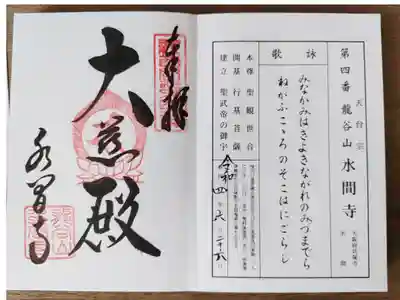 天台宗
第四番 龍谷山 水間寺
大阪府貝塚市
水間
詠歌
みなかみはきよきながれのみづまでら
ねがふこゝろのそこはにごらじ
本尊 聖観世音
開基 行基菩薩
建立 聖武帝の御宇
令和四年六月二十六日
奉拝
大慈殿
水間寺